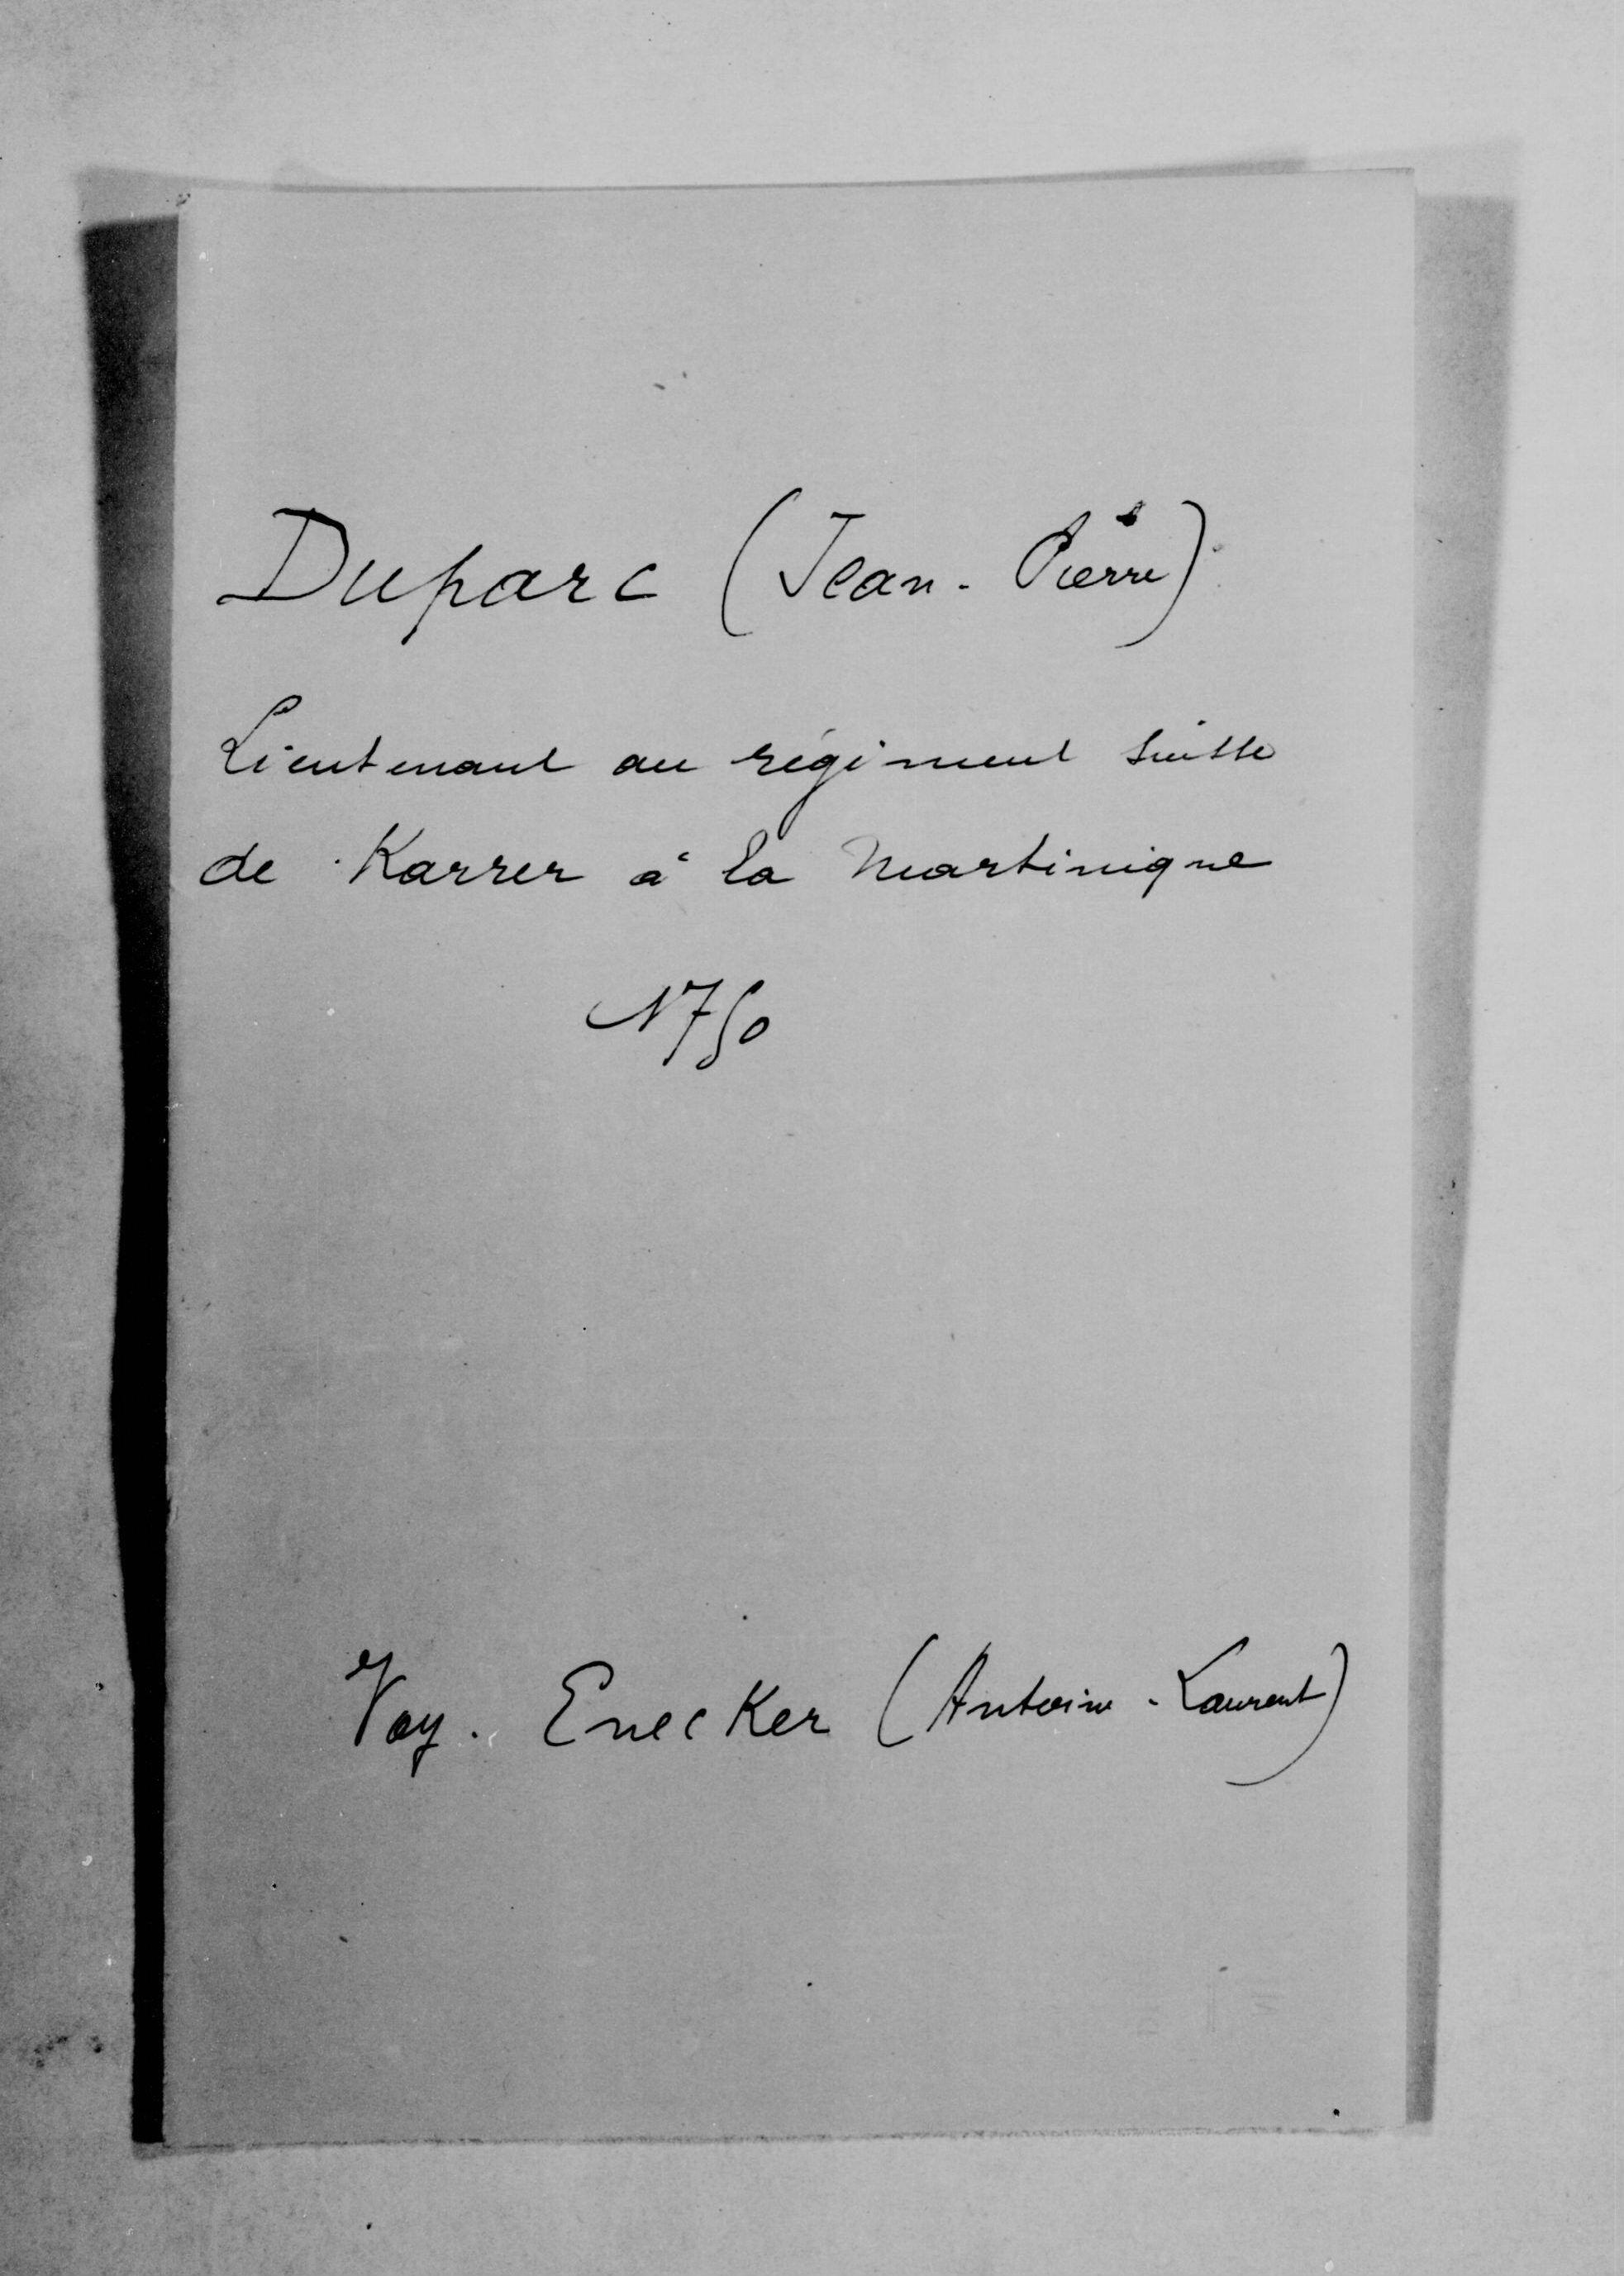 Duparc (Jean-Pierre)
Lieutenant au régiment suisse
de Karrer à la Martinique
1750
Voy. Enecker (Antoine-Laurent)